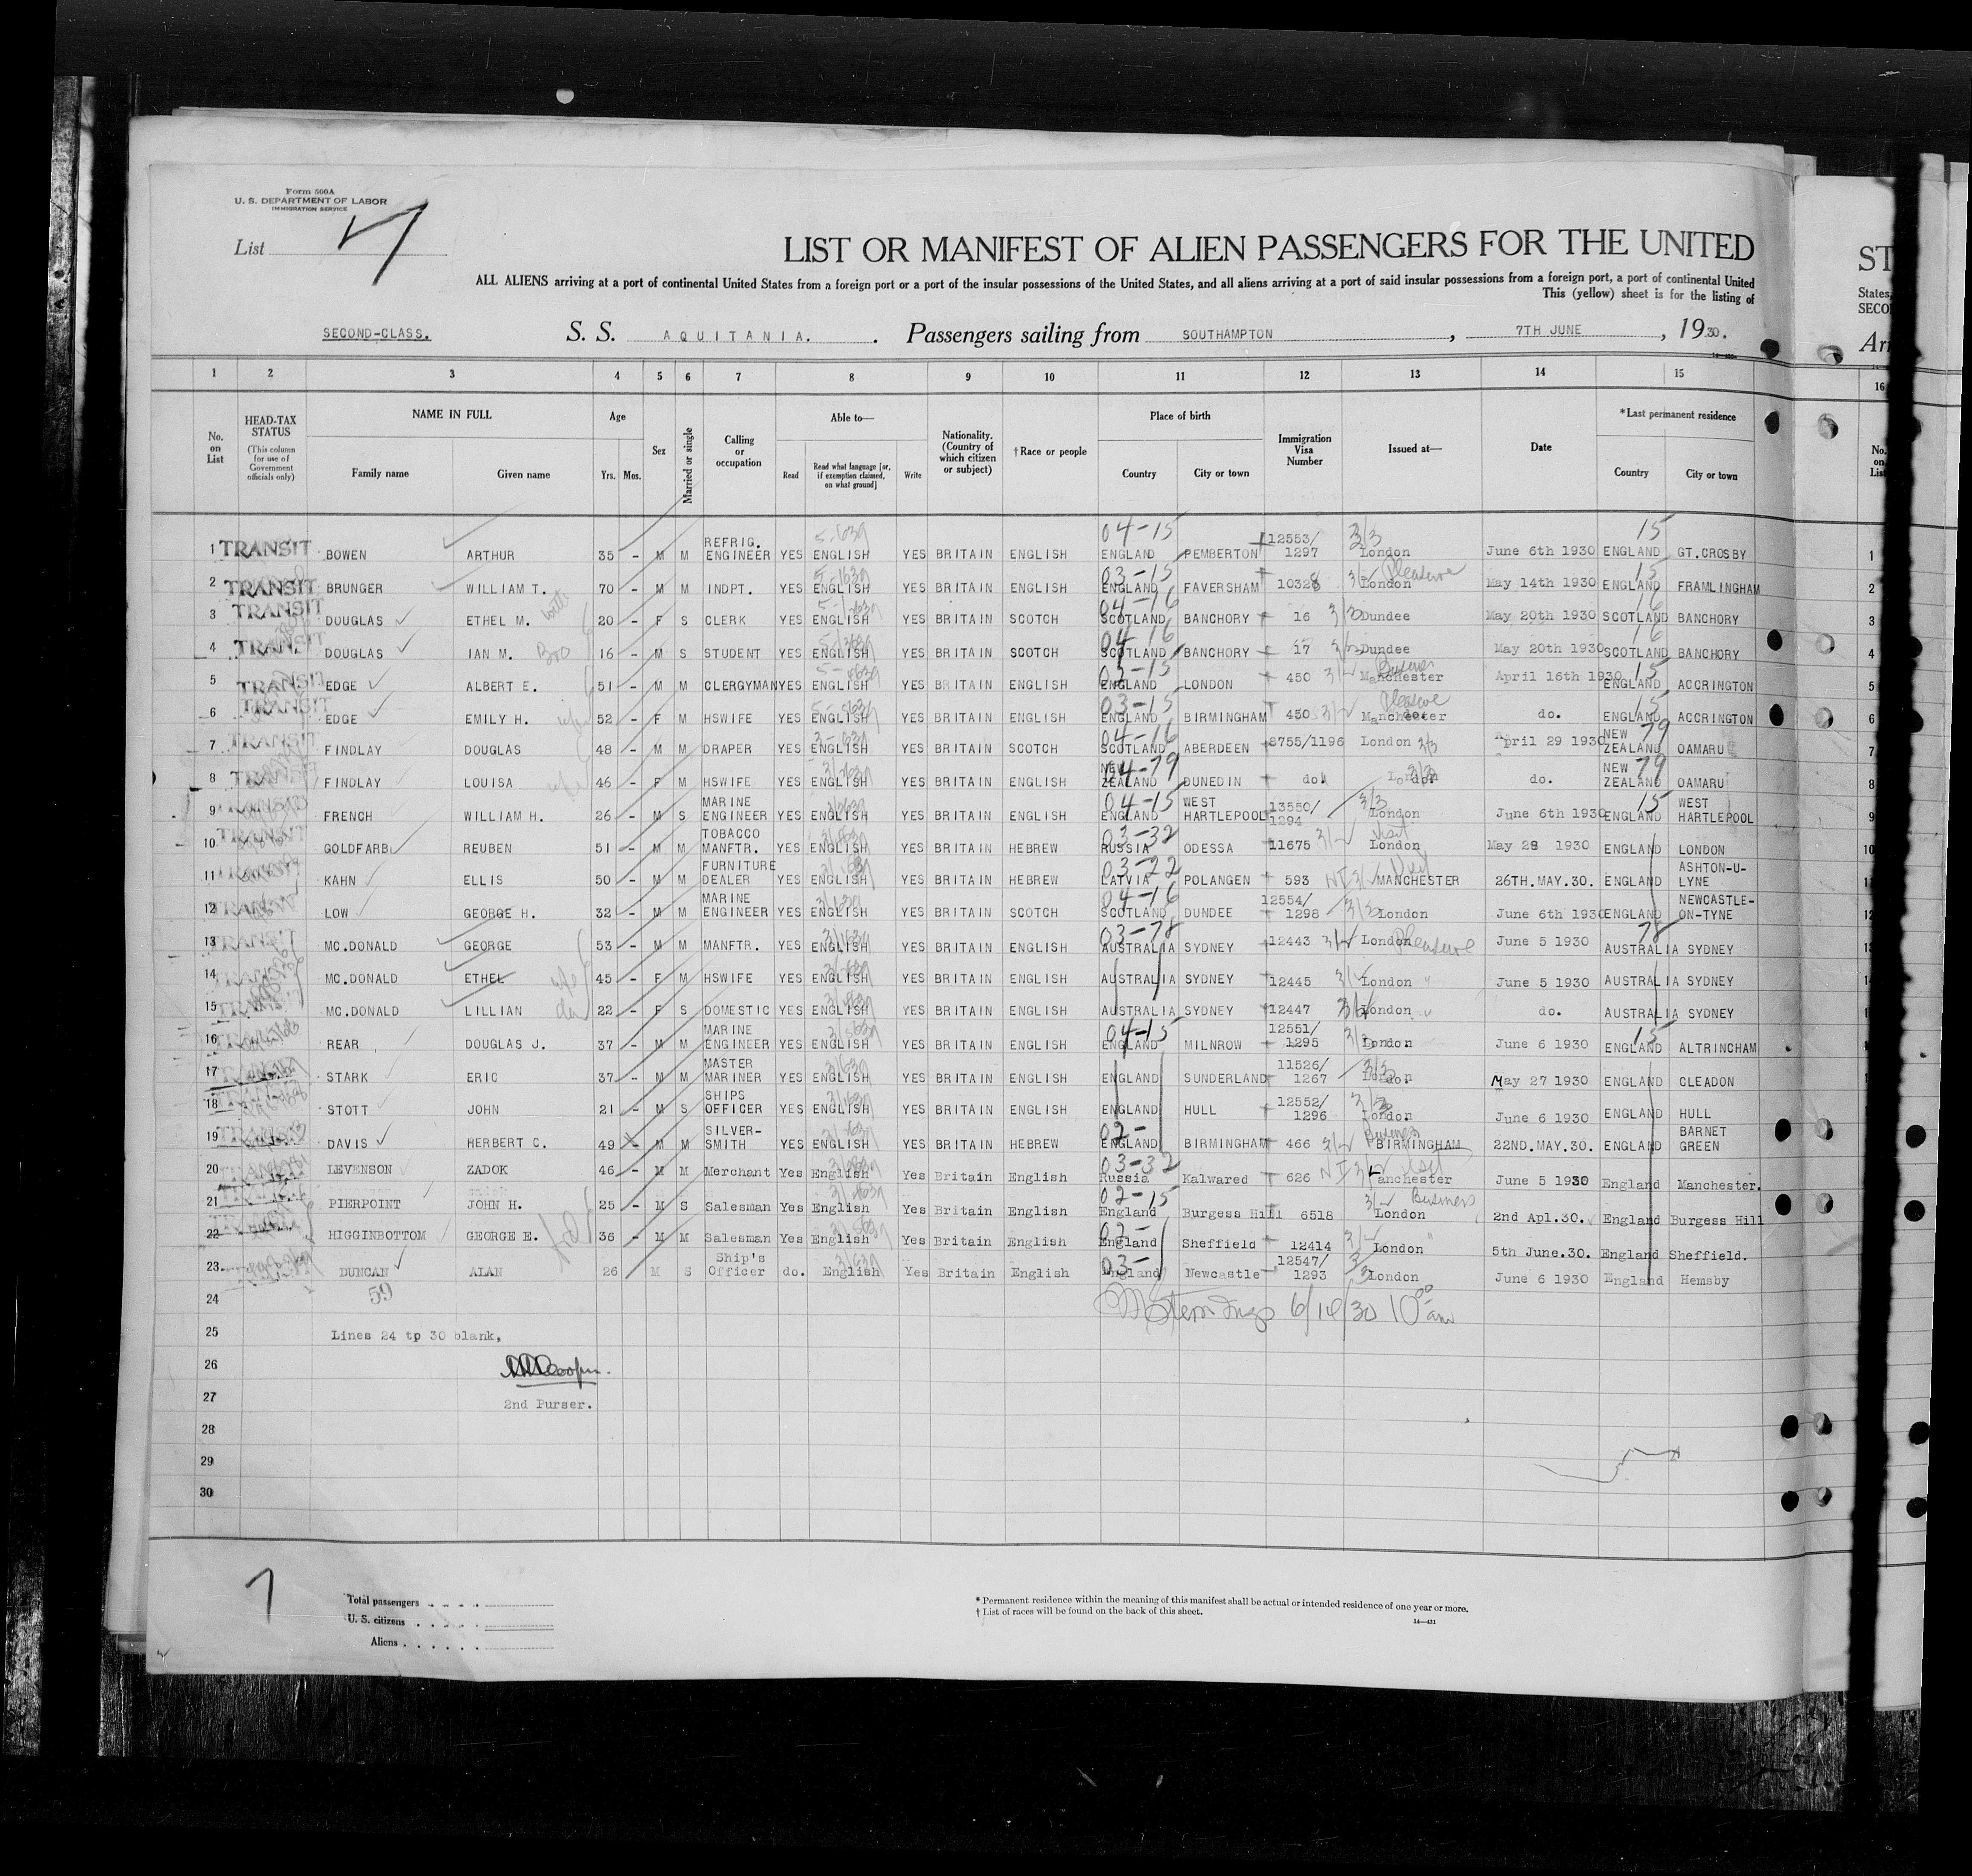 Form 500A
U. S. DEPARTMENT OF LABOR
IMMIGRATION SERVICE
List 7
LIST OR MANIFEST OF ALIEN PASSENGERS FOR THE UNITED
ST
ALL ALIENS arriving at a port of continental United States from a foreign port or a port of the insular possessions of the United States, and all aliens arriving at a port of said insular possessions from a foreign port, a port of continental United
States,
This (yellow) sheet is for the listing of
SECO
SECOND-CLASS. S. S. AQUITANIA. Passengers sailing from SOUTHAMPTON, 7TH JUNE, 1930.
1 2 3 4 5 6 7 8 9 10 11 12 13 14 15 16
No. on List
HEAD-TAX STATUS (This column for use of Government officials only)
NAME IN FULL
Family name Given name
Age
Yrs. Mos.
Sex
Married or single
Calling or occupation
Able to—
Read
Read what language [or, if exemption claimed, on what ground]
Write
Nationality. (Country of which citizen or subject)
†Race or people
Place of birth
Country City or town
Immigration Visa Number
Issued at—
Date
*Last permanent residence
Country City or town
No. on List
1 TRANSIT BOWEN ARTHUR 35 - M M REFRIG. ENGINEER YES ENGLISH YES BRITAIN ENGLISH 04-15 ENGLAND PEMBERTON 12553/1297 3/3 London June 6th 1930 15 ENGLAND GT.CROSBY
2 TRANSIT BRUNGER WILLIAM T. 70 - M M INDPT. YES ENGLISH YES BRITAIN ENGLISH 03-15 ENGLAND FAVERSHAM 10328 3/2 London Pleasure May 14th 1930 15 ENGLAND FRAMLINGHAM
3 TRANSIT DOUGLAS ETHEL M. 20 - F S CLERK YES ENGLISH YES BRITAIN SCOTCH 04-16 SCOTLAND BANCHORY 16 3/3 Dundee May 20th 1930 16 SCOTLAND BANCHORY
4 TRANSIT DOUGLAS IAN M. Bro 16 - M S STUDENT YES ENGLISH YES BRITAIN SCOTCH 04-16 SCOTLAND BANCHORY 17 Dundee May 20th 1930 16 SCOTLAND BANCHORY
5 TRANSIT EDGE ALBERT E. 51 - M M CLERGYMAN YES ENGLISH YES BRITAIN ENGLISH 03-15 ENGLAND LONDON 450 3/2 Business Manchester April 16th 1930 15 ENGLAND ACCRINGTON
6 TRANSIT EDGE EMILY H. wife 52 - F M HSWIFE YES ENGLISH YES BRITAIN ENGLISH 03-15 ENGLAND BIRMINGHAM 450 3/2 Pleasure Manchester do. do. 15 ENGLAND ACCRINGTON
7 TRANSIT FINDLAY DOUGLAS 48 - M M DRAPER YES ENGLISH YES BRITAIN SCOTCH 04-16 SCOTLAND ABERDEEN 8755/1196 London 3/3 April 29 1930 79 NEW ZEALAND OAMARU
8 TRANSIT FINDLAY LOUISA wife 46 - F M HSWIFE YES ENGLISH YES BRITAIN ENGLISH 04-79 NEW ZEALAND DUNEDIN do. London 3/3 do. 79 NEW ZEALAND OAMARU
9 TRANSIT FRENCH WILLIAM H. 26 - M S MARINE ENGINEER YES ENGLISH YES BRITAIN ENGLISH 04-15 ENGLAND WEST HARTLEPOOL 13550/1294 3/3 London June 6th 1930 15 ENGLAND WEST HARTLEPOOL
10 TRANSIT GOLDFARB REUBEN 51 - M M TOBACCO MANFTR. YES ENGLISH YES BRITAIN HEBREW 03-32 RUSSIA ODESSA 11675 3/2 Visit London May 28 1930 ENGLAND LONDON
11 TRANSIT KAHN ELLIS 50 - M M FURNITURE DEALER YES ENGLISH YES BRITAIN HEBREW 03-22 LATVIA POLANGEN 593 Visit MANCHESTER 26TH.MAY.30. ENGLAND ASHTON-U-LYNE
12 TRANSIT LOW GEORGE H. 32 - M M MARINE ENGINEER YES ENGLISH YES BRITAIN SCOTCH 04-16 SCOTLAND DUNDEE 12554/1298 3/3 London June 6th 1930 ENGLAND NEWCASTLE-ON-TYNE
13 TRANSIT MC.DONALD GEORGE 53 - M M MANFTR. YES ENGLISH YES BRITAIN ENGLISH 03-78 AUSTRALIA SYDNEY 12443 3/2 London Pleasure June 5 1930 78 AUSTRALIA SYDNEY
14 MC.DONALD ETHEL wife 45 - F M HSWIFE YES ENGLISH YES BRITAIN ENGLISH AUSTRALIA SYDNEY 12445 3/2 London " June 5 1930 AUSTRALIA SYDNEY
15 MC.DONALD LILLIAN da 22 - F S DOMESTIC YES ENGLISH YES BRITAIN ENGLISH AUSTRALIA SYDNEY 12447 3/2 London " do. AUSTRALIA SYDNEY
16 REAR DOUGLAS J. 37 - M M MARINE ENGINEER YES ENGLISH YES BRITAIN ENGLISH 04-15 ENGLAND MILNROW 12551/1295 3/3 London June 6 1930 15 ENGLAND ALTRINCHAM
17 STARK ERIC 37 - M M MASTER MARINER YES ENGLISH YES BRITAIN ENGLISH ENGLAND SUNDERLAND 11526/1267 3/3 London do. May 27 1930 ENGLAND CLEADON
18 STOTT JOHN 21 - M S SHIPS OFFICER YES ENGLISH YES BRITAIN ENGLISH ENGLAND HULL 12552/1296 3/3 London June 6 1930 ENGLAND HULL
19 TRANSIT DAVIS HERBERT C. 49 - M M SILVER-SMITH YES ENGLISH YES BRITAIN HEBREW 02- ENGLAND BIRMINGHAM 466 3/2 Business BIRMINGHAM 22ND.MAY.30. ENGLAND BARNET GREEN
20 LEVENSON ZADOK 46 - M M Merchant Yes English Yes Britain English 03-32 Russia Kalwared 626 Visit Manchester June 5 1930 England Manchester.
21 PIERPOINT JOHN H. 25 - M S Salesman Yes English Yes Britain English 02-15 England Burgess Hill 6518 3/2 Business London 2nd Apl.30. England Burgess Hill
22 HIGGINBOTTOM GEORGE E. 36 - M M Salesman Yes English Yes Britain English 02- England Sheffield 12414 3/2 London " 5th June.30. England Sheffield.
23 DUNCAN ALAN 26 M S Ship's Officer do. English Yes Britain English 03- England Newcastle 12547/1293 3/3 London June 6 1930 England Hemsby
24 59 6/14/30 10 00 am
25 Lines 24 to 30 blank,
26
27 2nd Purser.
28
29
30
7
Total passengers
U. S. citizens
Aliens
* Permanent residence within the meaning of this manifest shall be actual or intended residence of one year or more.
† List of races will be found on the back of this sheet.
14—421